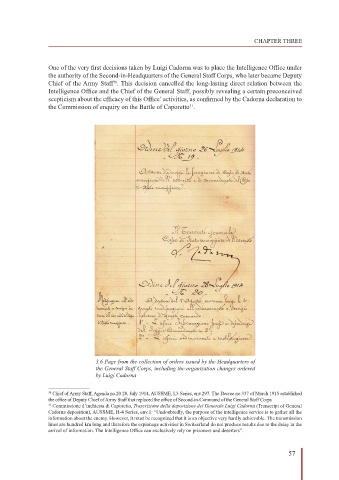 CHAPTER THREE
One of the very first decisions taken by Luigi Cadorna was to place the Intelligence Office under
the authority of the Second-in-Headquarters of the General Staff Corps, who later became Deputy
Chief of the Army Staff³⁰. This decision cancelled the long-lasting direct relation between the
Intelligence Office and the Chief of the General Staff, possibly revealing a certain preconceived
scepticism about the efficacy of this Office' activities, as confirmed by the Cadorna declaration to
the Commission of enquiry on the Battle of Caporetto³¹.
Ordine del giorno 26 Luglio 1914
N. 19.
Il Tenente Generale
Capo di Stato maggiore dell'esercito
L. Cadorna
Ordine del giorno 28 Luglio 1914
N. 20.
3.6 Page from the collection of orders issued by the Headquarters of
the General Staff Corps, including the organization changes ordered
by Luigi Cadorna
³⁰ Chief of Army Staff, Agenda no.20 28, July 1914, AUSSME, L3 Series, env.297. The Decree no.337 of March 1915 established
the office of Deputy Chief of Army Staff that replaced the office of Second-in-Command of the General Staff Corps
³¹ Commissione d'inchiesta di Caporetto, Trascrizione della deposizione del Generale Luigi Cadorna (Transcript of General
Cadorna deposition), AUSSME, H-4 Series, env.1: "Undoubtedly, the purpose of the intelligence service is to gather all the
information about the enemy. However, it must be recognized that it is an objective very hardly achievable. The transmission
lines are hundred km long and therefore the espionage activities in Switzerland do not produce results due to the delay in the
arrival of information. The Intelligence Office can exclusively rely on prisoners and deserters".
57